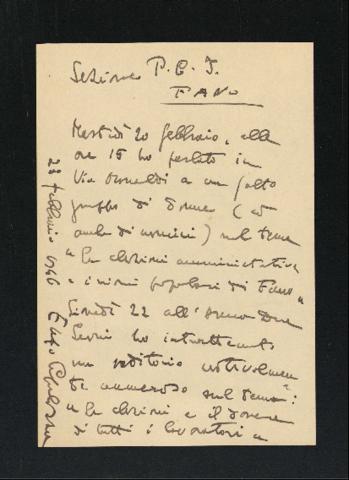 Sezione P.C.I.
FANO
Martedì 20 febbraio, alle
ore 15 ho parlato in
Via a un folto
gruppo di donne (ed
anche di uomini) sul tema
"Le elezioni amministrative
e i rioni popolari di Fano"
Giovedì 22 all'
ho intrattenuto
un uditorio
te numeroso sul tema:
"Le elezioni e il dovere
di tutti i lavoratori"
23 febbraio 1946